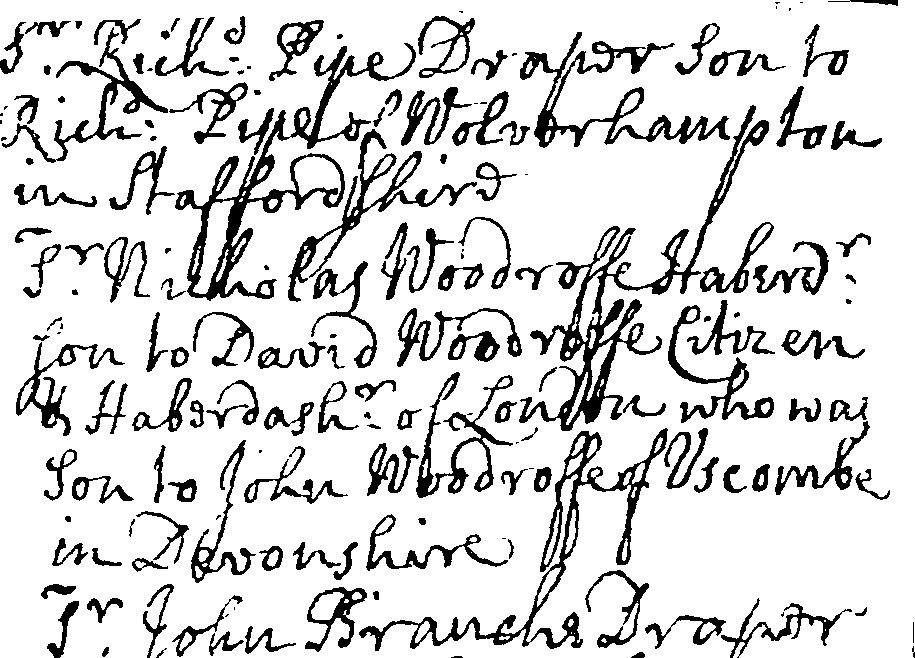 Sr. Richd: Pipe Draper Son to
Richd: Pipe of Wolverhampton
in Staffordshire
Sr Nicholas Woodroffe Haberdr:
Son to David Woodroffe Citizen
& Haberdashr: of London who was
Son to John Woodroffe of Uscombe
in Devonshire
Sr. John Branche Draper